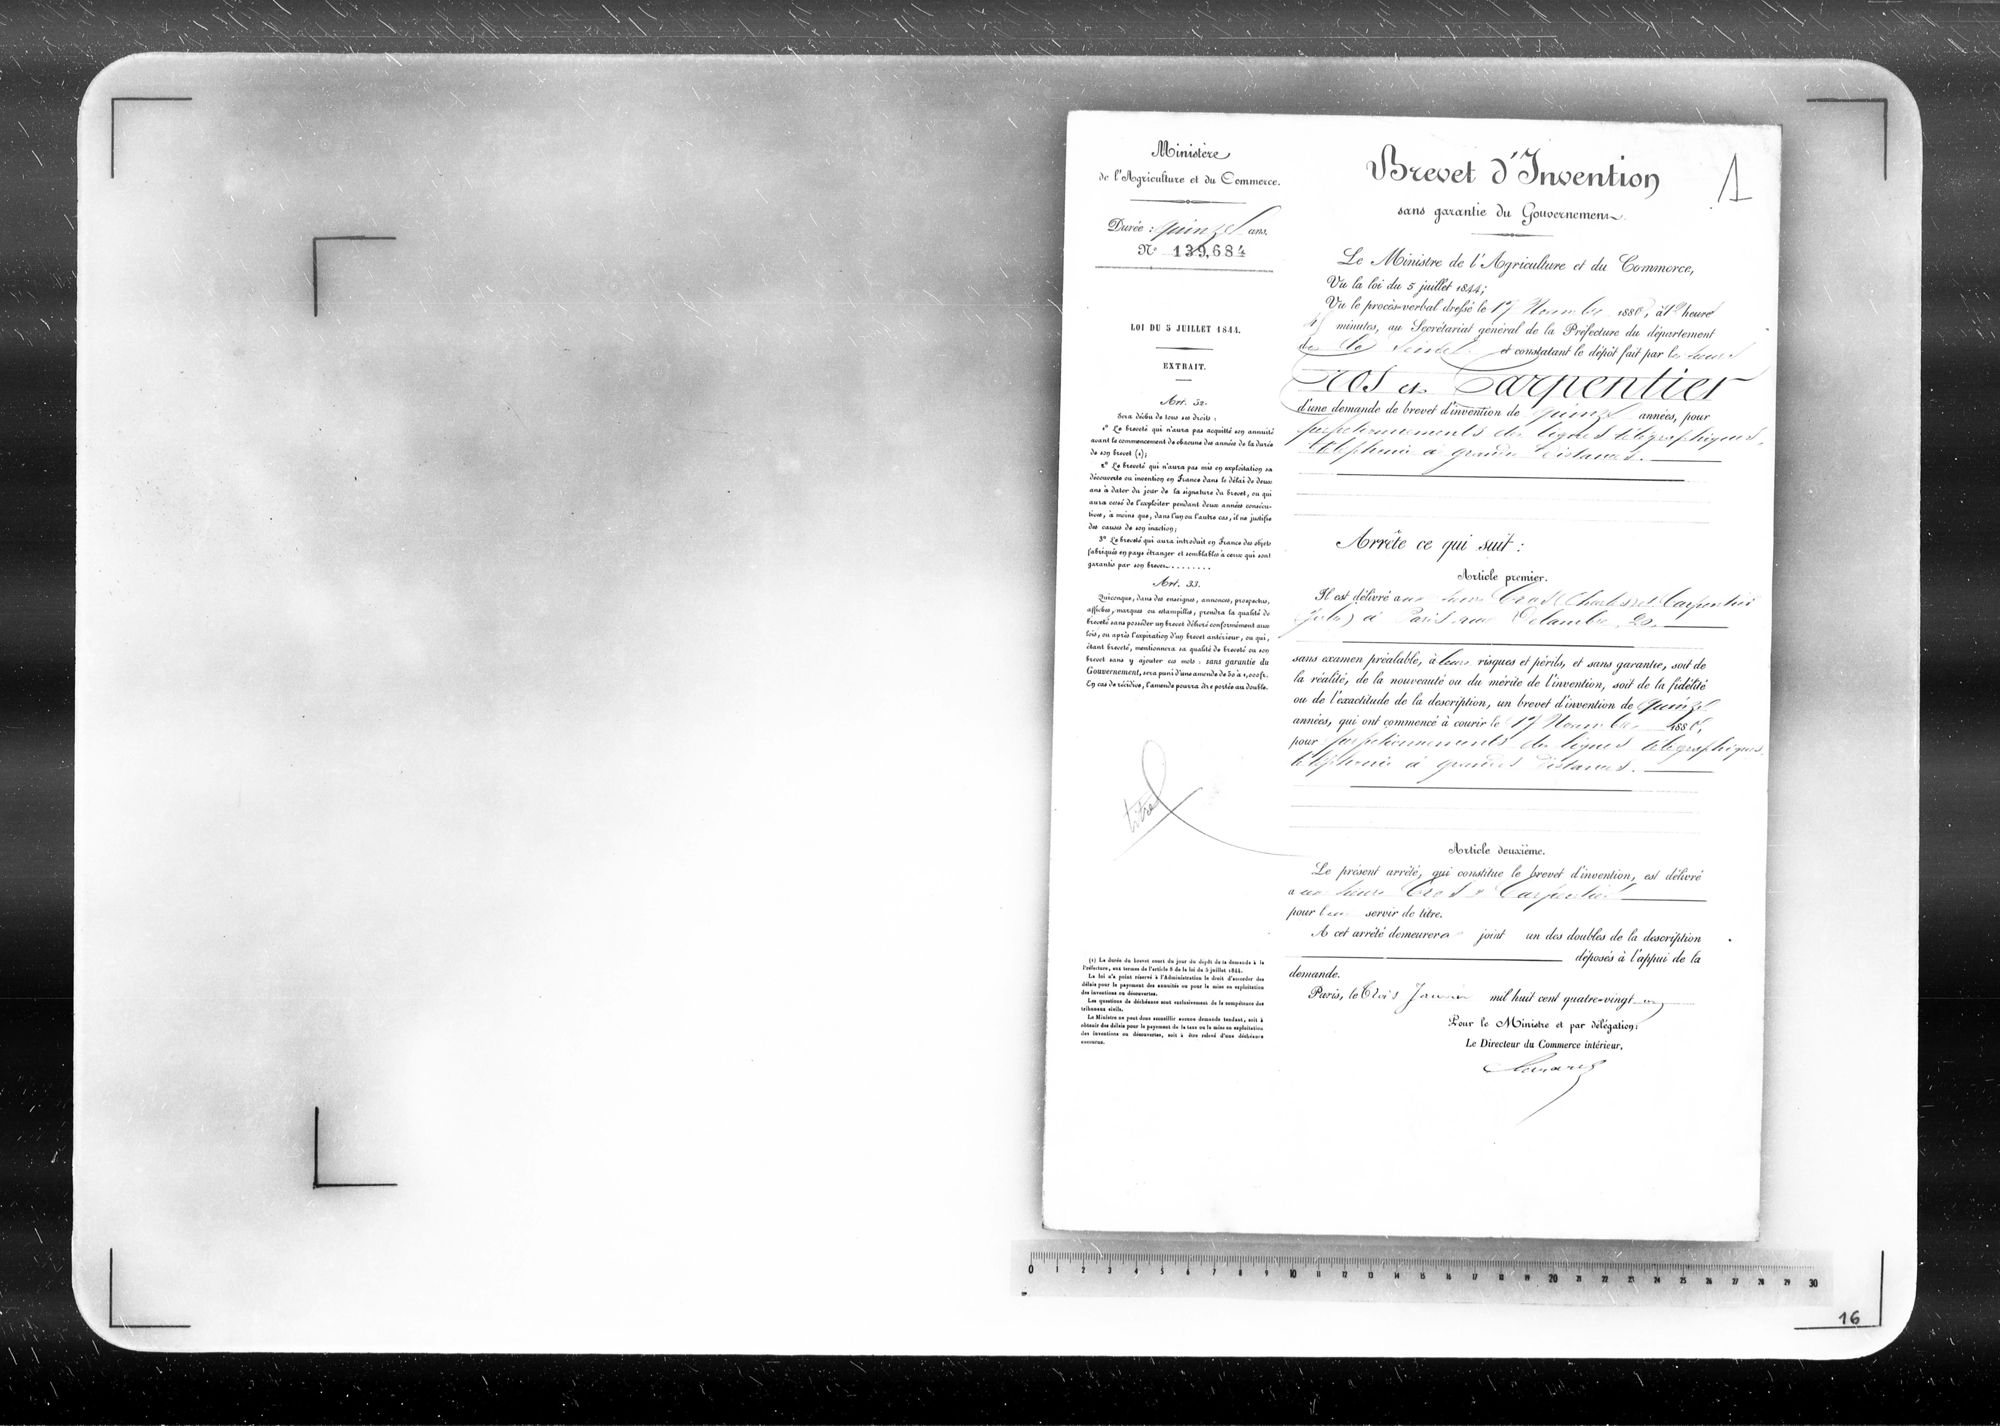 Ministère
de l'Agriculture et du Commerce.
Durée : quinze ans.
N° 139,684
LOI DU 5 JUILLET 1844.
EXTRAIT.
Art. 32.
Sera déchu de tous ses droits :
1° Le breveté qui n'aura pas acquitté son annuité
avant le commencement de chacune des années de la durée
de son brevet (1);
2° Le breveté qui n'aura pas mis en exploitation sa
découverte ou invention en France dans le délai de deux
ans à dater du jour de la signature du brevet, ou qui
aura cessé de l'exploiter pendant deux années consécu-
tives, à moins que, dans l'un ou l'autre cas, il ne justifie
des causes de son inaction;
3° Le breveté qui aura introduit en France des objets
fabriqués en pays étranger et semblables à ceux qui sont
garantis par son brevet........
Art. 33.
Quiconque, dans des enseignes, annonces, prospectus,
affiches, marques ou estampilles, prendra la qualité de
breveté sans posséder un brevet délivré conformément aux
lois, ou après l'expiration d'un brevet antérieur, ou qui,
étant breveté, mentionnera sa qualité de breveté ou son
brevet sans y ajouter ces mots : sans garantie du
Gouvernement, sera puni d'une amende de 50 à 1,000 fr.
En cas de récidive, l'amende pourra être portée au double.
titre
(1) La durée du brevet court du jour du dépôt de la demande à la
Préfecture, aux termes de l'article 8 de la loi du 5 juillet 1844.
La loi n'a point réservé à l'Administration le droit d'accorder des
délais pour le payement des annuités ou pour la mise en exploitation
des inventions ou découvertes.
Les questions de déchéance sont exclusivement de la compétence des
tribunaux civils.
Le Ministre ne peut donc accueillir aucune demande tendant, soit à
obtenir des délais pour le payement de la taxe ou la mise en exploitation
des inventions ou découvertes, soit à être relevé d'une déchéance
encourue.
Brevet d'Invention
1
sans garantie du Gouvernement.
Le Ministre de l'Agriculture et du Commerce,
Vu la loi du 5 juillet 1844;
Vu le procès-verbal dressé le 17 Novembre 1880, à 1 heure
minutes, au Secrétariat général de la Préfecture du département
de la Seine et constatant le dépôt fait par les sieurs
Cros et Carpentier
d'une demande de brevet d'invention de quinze années, pour
perfectionnements des lignes télégraphiques,
téléphonie à grandes distances.
Arrête ce qui suit :
Article premier.
Il est délivré aux sieurs Cros (Charles) et Carpentier
(Jules) à Paris rue Delambre, 20,
sans examen préalable, à leurs risques et périls, et sans garantie, soit de
la réalité, de la nouveauté ou du mérite de l'invention, soit de la fidélité
ou de l'exactitude de la description, un brevet d'invention de quinze
années, qui ont commencé à courir le 17 Novembre 1880,
pour perfectionnements des lignes télégraphiques,
téléphonie à grandes distances.
Article deuxième.
Le présent arrêté, qui constitue le brevet d'invention, est délivré
aux sieurs Cros et Carpentier
pour leur servir de titre.
A cet arrêté demeurera joint un des doubles de la description
déposés à l'appui de la
demande.
Paris, le Trois Janvier mil huit cent quatre-vingt un
Pour le Ministre et par délégation:
Le Directeur du Commerce intérieur,
0 1 2 3 4 5 6 7 8 9 10 11 12 13 14 15 16 17 18 19 20 21 22 23 24 25 26 27 28 29 30
16